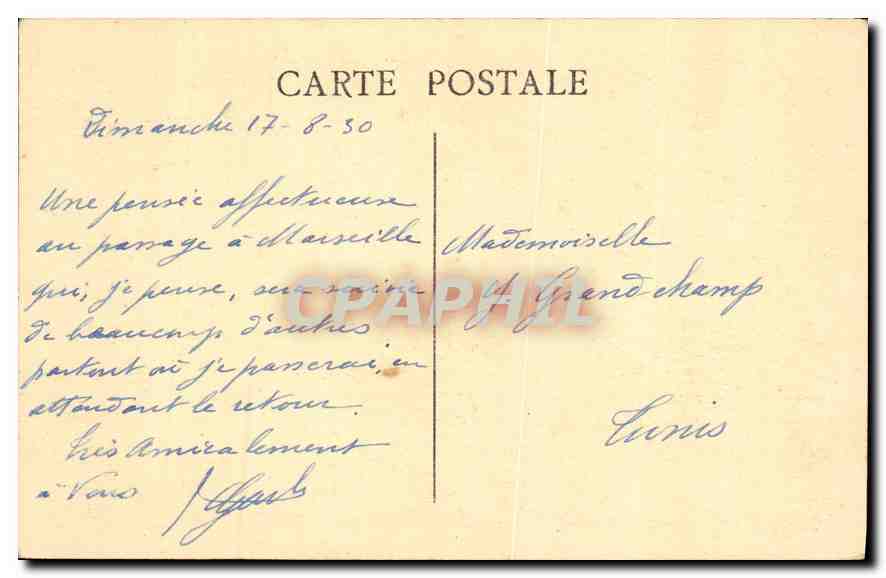 CARTE POSTALE
Dimanche 17-8-30
Une pensée affectueuse
au passage à Marseille
qui, je pense, sera suivie
de beaucoup d'autres
partout où je passerai, en
attendant le retour.
Très Amicalement
à Vous
Mademoiselle
Grand-champ
Tunis
CPAPHIL